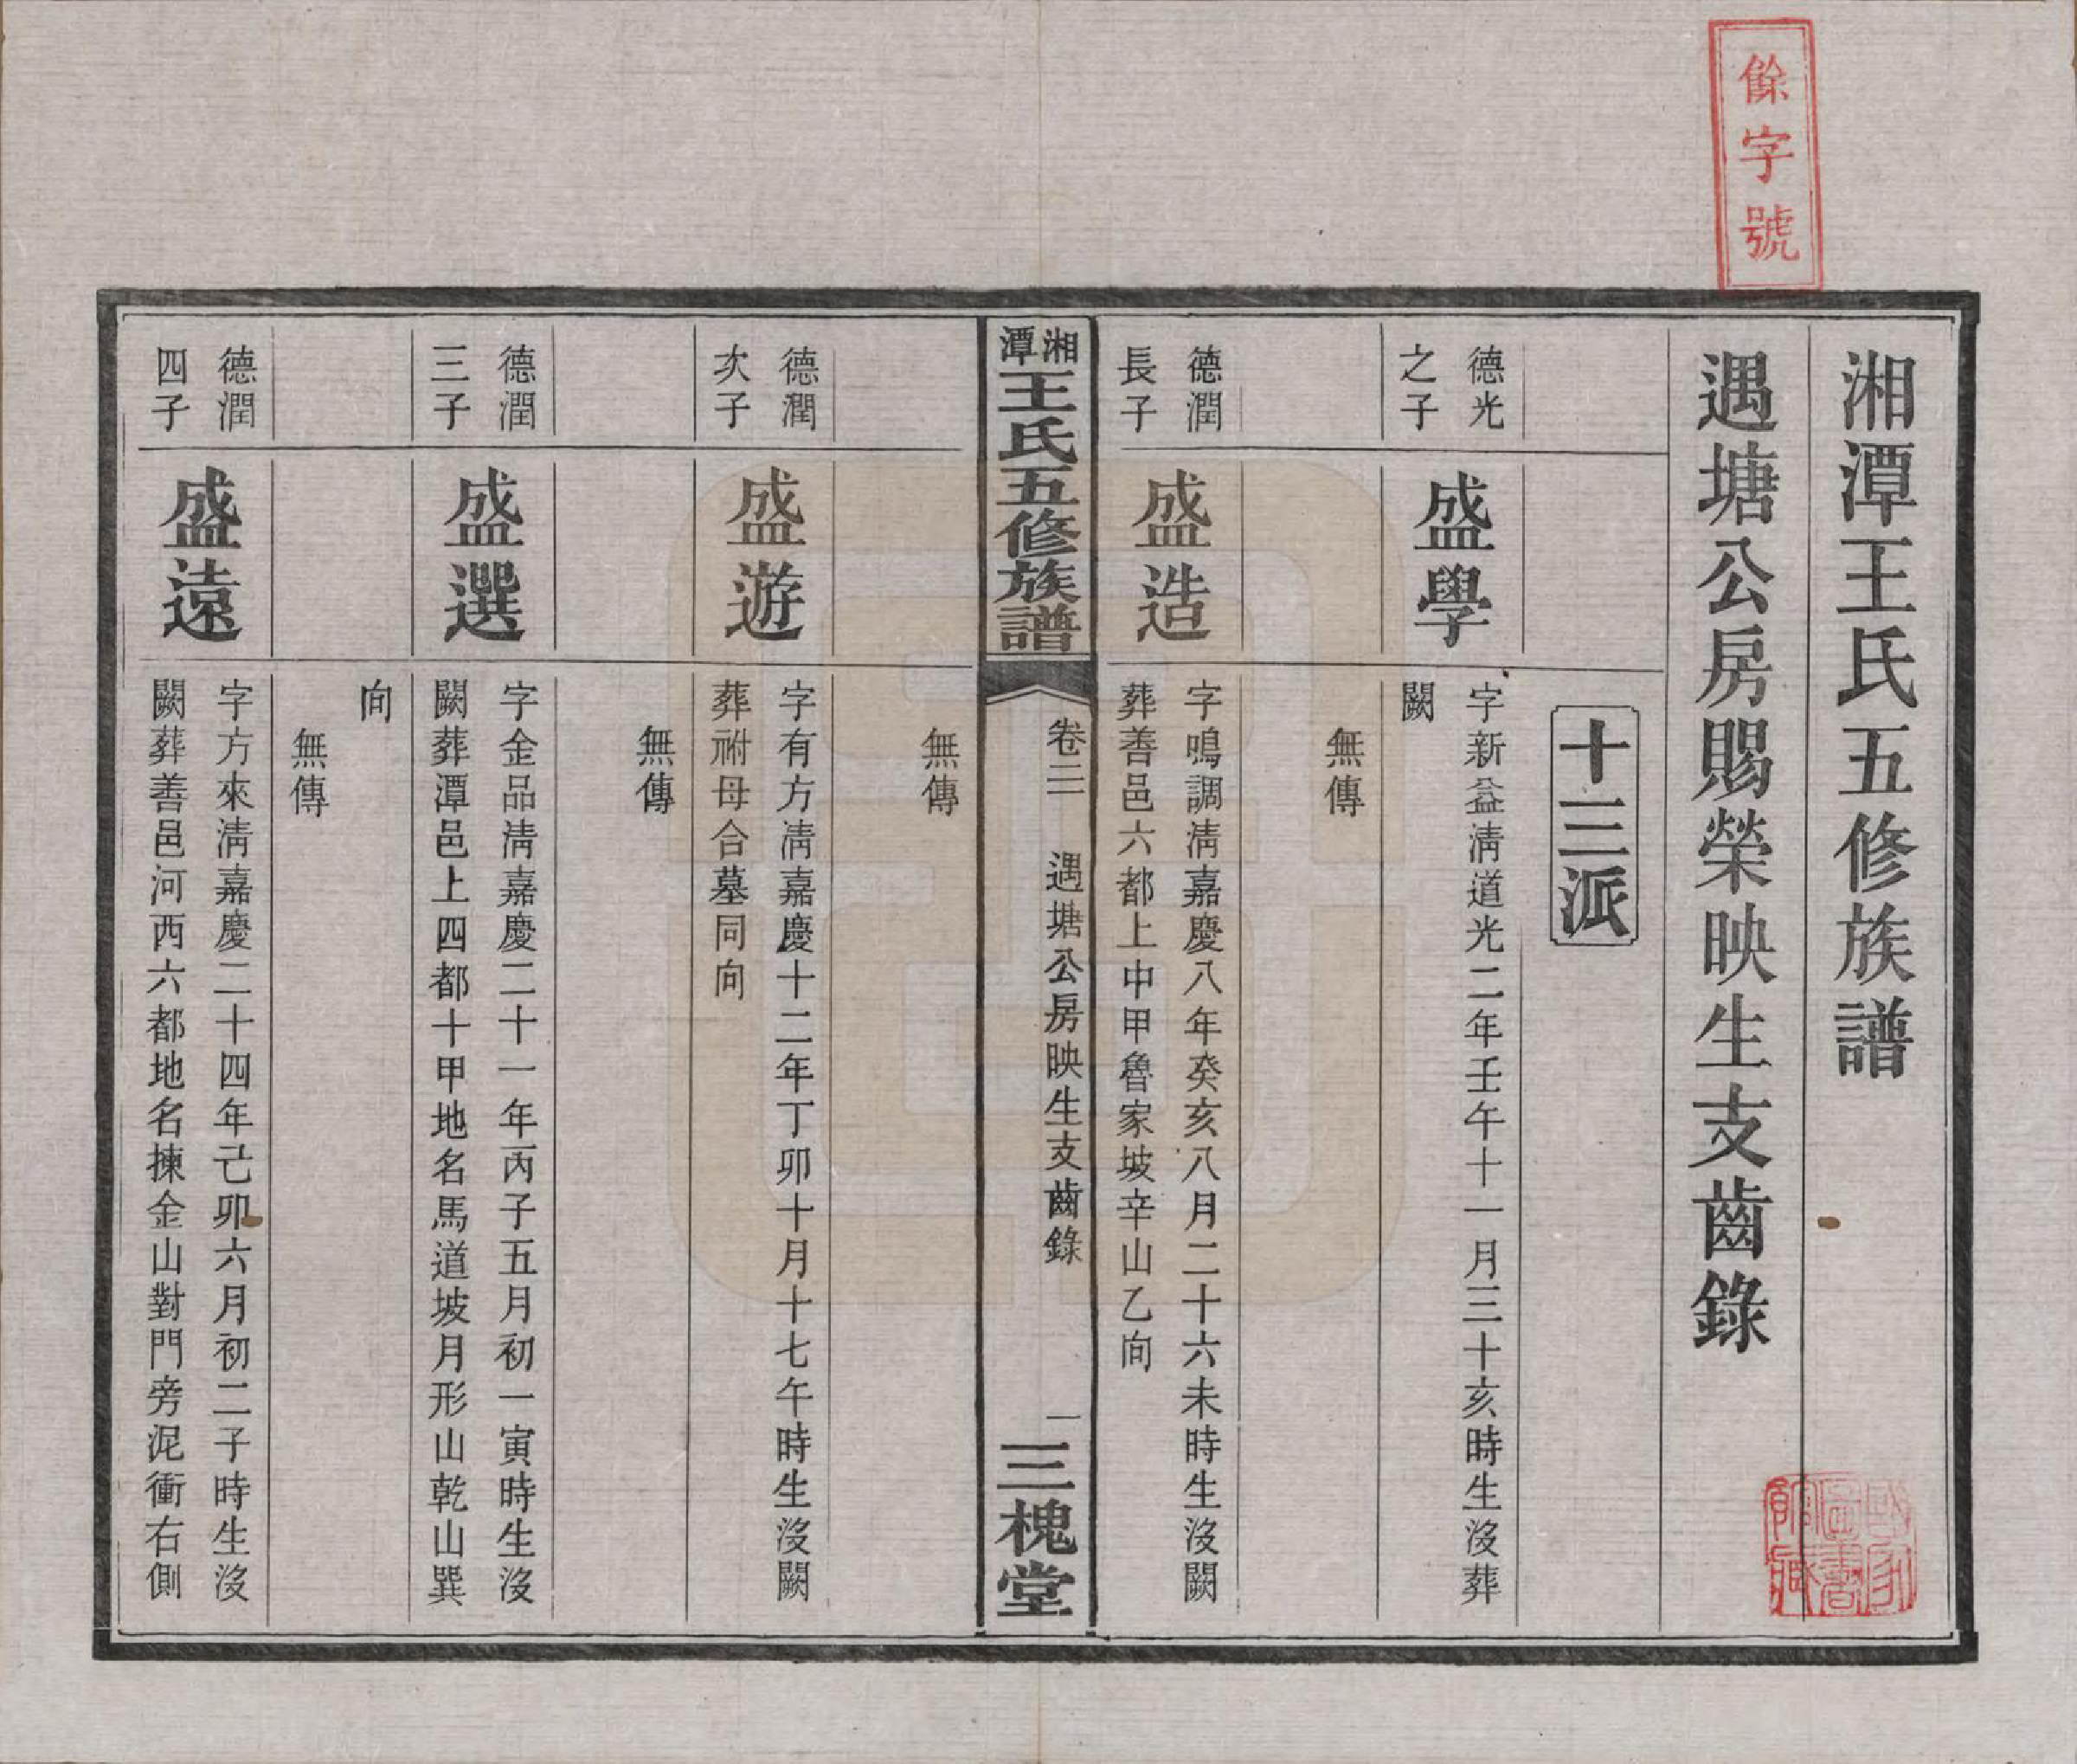 餘字號
湘潭王氏五修族譜
遇塘公房賜榮映生支齒錄
十三派
德光
之子
盛學
字新益淸道光二年壬午十一月三十亥時生沒葬
闕
無傳
德潤
長子
盛造
字鳴調淸嘉慶八年癸亥八月二十六未時生沒闕
葬善邑六都上中甲魯家坡辛山乙向
湘潭王氏五修族譜
卷二 遇塘公房映生支齒錄
一
三槐堂
無傳
德潤
次子
盛遊
字有方淸嘉慶十二年丁卯十月十七午時生沒闕
葬祔母合墓同向
無傳
德潤
三子
盛選
字金品淸嘉慶二十一年丙子五月初一寅時生沒
闕葬潭邑上四都十甲地名馬道坡月形山乾山巽
向
無傳
德潤
四子
盛遠
字方來淸嘉慶二十四年己卯六月初二子時生沒
闕葬善邑河西六都地名揀金山對門旁泥衝右側